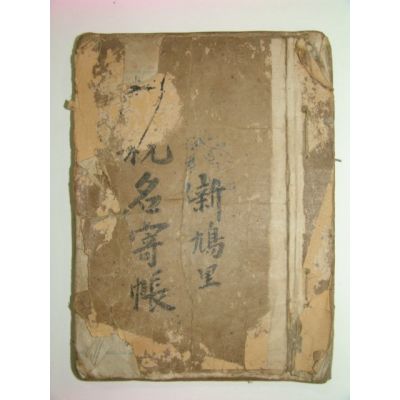 新鳩里
税名寄帳